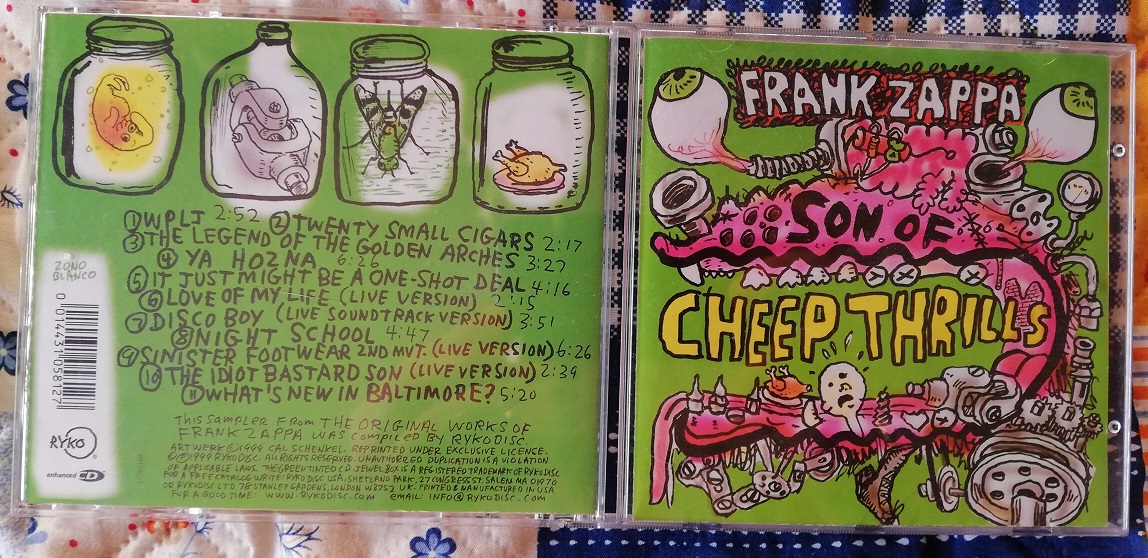 ① WPLJ 2:52 ② TWENTY SMALL CIGARS 2:17
③ THE LEGEND OF THE GOLDEN ARCHES 3:27
④ YA HOZNA 6:26
⑤ IT JUST MIGHT BE A ONE-SHOT DEAL 4:16
⑥ LOVE OF MY LIFE (LIVE VERSION) 2:15
⑦ DISCO BOY (LIVE SOUNDTRACK VERSION) 3:51
⑧ NIGHT SCHOOL 4:47
⑨ SINISTER FOOTWEAR 2ND MVT. (LIVE VERSION) 6:26
⑩ THE IDIOT BASTARD SON (LIVE VERSION) 2:39
⑪ WHAT'S NEW IN BALTIMORE? 5:20
ZONO
BLANCO
RYKO
enhanced CD
This SAMPLER FROM THE ORIGINAL WORKS OF
FRANK ZAPPA WAS COMPILED BY RYKODISC.
ARTWERK © 1999 CAL SCHENKEL. REPRINTED UNDER EXCLUSIVE LICENCE.
℗© 1999 RYKODISC. ALL RIGHTS RESERVED. UNAUTHORIZED DUPLICATION IS A VIOLATION
OF APPLICABLE LAWS. THE GREEN TINTED CD JEWEL BOX IS A REGISTERED TRADEMARK OF RYKODISC
FOR A FREE CATALOG WRITE: RYKODISC USA, SHETLAND PARK, 27 CONGRESS ST. SALEM MA 01970
OR RYKODISC LTD 78 STANLEY GARDENS, LONDON W3 7SZ U.K. PRINTED & MANUFACTURED IN USA
FOR A GOOD TIME: WWW.RYKODISC.COM EMAIL: INFO@RYKODISC.COM
FRANK ZAPPA
SON OF
CHEEP THRILLS